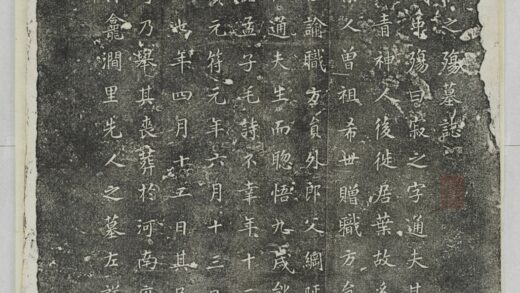 之殤墓誌
弟殤自牧之字通夫其
青神人後徙居葉故
人曾祖希世贈職方員
諭職方員外郎父綱
通夫生而聰悟九歲能
孟子毛詩不幸年十
元符元年六月十三日
年四月十五日其
乃舉其喪葬於河南
龕澗里先人之墓左